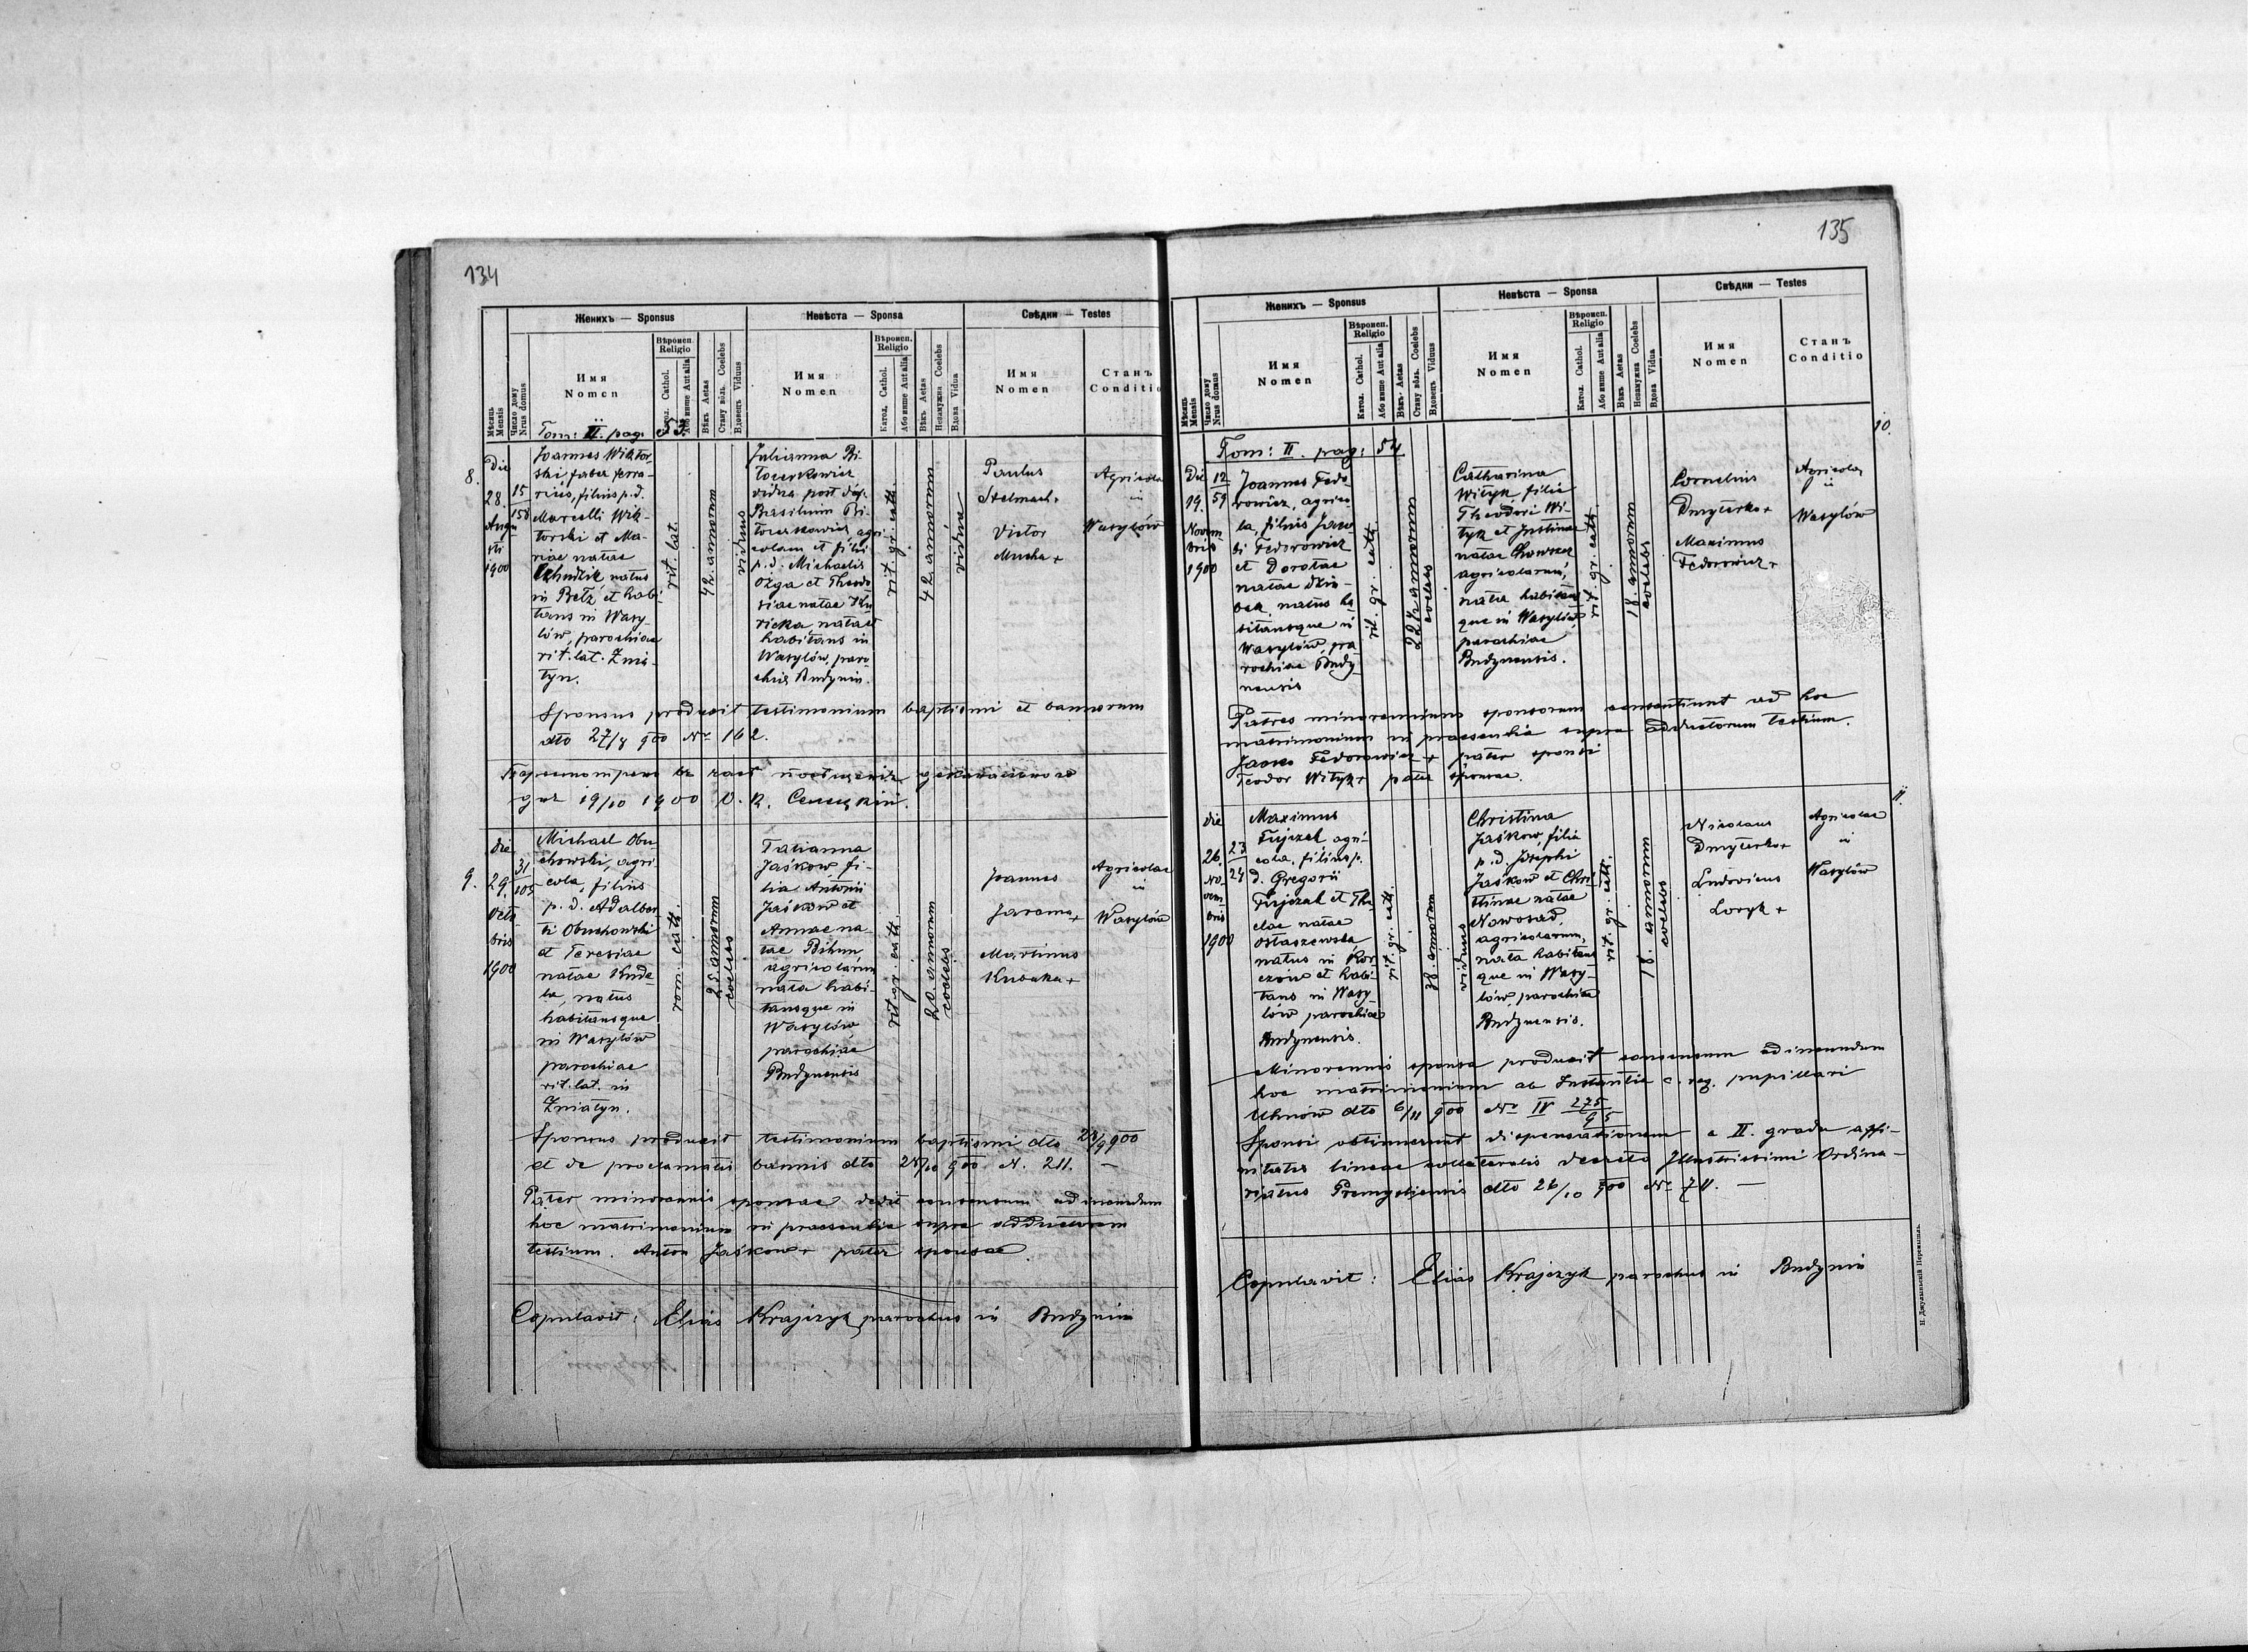 134
Женихъ — Sponsus
Невѣста — Sponsa
Свѣдки — Testes
Мѣсяць Mensis
Число дому Nrus domus
Имя Nomen
Вѣроисп. Religio
Катол. Cathol.
Або инше Aut alia
Вѣкъ Aetas
Стану вôль. Coelebs
Вдовець Viduus
Имя Nomen
Вѣроисп. Religio
Катол. Cathol.
Або инше Aut alia
Вѣкъ Aetas
Незамужна Coelebs
Вдова Vidua
Имя Nomen
Станъ Conditio
Tom: II. pag. 53
8.
Die
28.
Augu
sti
1900
15
158
Joannes Wiktor-
ski, faber ferra-
rius, filius p. d.
Marcelli Wik-
torski et Ma-
riae natae
natus
in Betz et habi-
tans in Wasy-
lów, parochiae
rit. lat. Żnia-
tyn.
rit. lat.
42 annorum
viduus
Julianna Bi-
toczkowicz
vidua post def.
Basilium Bi-
toczkowicz agri-
colam et filia
p. d. Michaelis
Ozga et Theodo-
siae natae Ku-
ricka, nata et
habitans in
Wasylów, paro-
chiae Budynin.
rit. gr. cath.
42 annorum
vidua
Paulus
Stelmach +
Victor
Mucha +
Agricolae
in
Wasylów
Sponsus produxit testimonium baptismi et bannorum
dto 27/8 900 Nr. 162.
19/10 1900
9.
die
29.
Octo
bris
1900
31
105
Michael Obu-
chowski, agri-
cola, filius
p. d. Adalber-
ti Obuchowski
et Teresiae
natae Kude-
la, natus
habitansque
in Wasylów
parochiae
rit. lat. in
Żniatyn.
rom. cath.
25 annorum
coelebs
Tatianna
Jaśków, fi-
lia Antonii
Jaśków et
Annae na-
tae Bihun,
agricolarum
nata habi-
tansque in
Wasylów
parochiae
Budynensis
rit. gr. cath.
20. annorum
coelebs
Joannes
Jarema +
Martinus
Kubaka +
Agricolae
in
Wasylów
Sponsus produxit testimonium baptismi dto 28/9 900
et de proclamatis bannis dto 28/10 900 N. 211. —
Pater minorennis sponsae dedit consensum ad ineundum
hoc matrimonium in praesentia supra adductorum
testium. Anton Jaśkow + pater sponsae
Copulavit: Elias Krajczyk parochus in Budynin
135
Женихъ — Sponsus
Невѣста — Sponsa
Свѣдки — Testes
Мѣсяць Mensis
Число дому Nrus domus
Имя Nomen
Вѣроисп. Religio
Катол. Cathol.
Або инше Aut alia
Вѣкъ Aetas
Стану вôль. Coelebs
Вдовець Viduus
Имя Nomen
Вѣроисп. Religio
Катол. Cathol.
Або инше Aut alia
Вѣкъ Aetas
Незамужна Coelebs
Вдова Vidua
Имя Nomen
Станъ Conditio
10.
Tom: II. pag: 54
Die
19.
Novem
bris
1900
12
59
Joannes Fedo-
rowicz, agrico-
la, filius Jaco-
bi Fedorowicz
et Dorotae
natae Dziu-
bek, natus ha-
bitansque in
Wasylów, pa-
rochiae Budy-
nensis
rit. gr. cath.
22 ½ annorum
coelebs
Catharina
Wityk, filia
Theodori Wi-
tyk et Justinae
natae
agricolarum,
nata habitans
que in Wasylów
parochiae
Budynensis.
rit. gr. cath.
18. annorum
coelebs
Cornelius
Dmyterko +
Maximus
Fedorowicz +
Agricolae
in
Wasylów
Patres minorennium sponsorum consentiunt ad hoc
matrimonium in praesentia supra adductorum testium.
Jacko Fedorowicz + pater sponsi
Teodor Wityk + pater sponsae.
11.
die
26.
No-
vem
bris
1900
23
24
Maximus
Fujczak agri-
cola, filius p.
d. Gregorii
Fujczak et The-
clae natae
Ostaszewska,
natus in Kor-
czów et habi-
tans in Wasy-
lów parochiae
Budynensis.
rit. gr. cath.
38. annorum
viduus
Christina
Jaśkow, filia
p. d. Josephi
Jaśkow et Chri-
stinae natae
Nowosad,
agricolarum,
nata habitans
que in Wasy-
lów, parochiae
Budynensis.
rit. gr. cath.
18. annorum
coelebs
Nicolaus
Dmyterko +
Ludovicus
Loryk +
Agricolae
in
Wasylów
Minorennis sponsa produxit consensum ad ineundum
hoc matrimonium ab Instantia c. reg. pupillari
Uhnów dto 6/11 900 Nr IV 275/95
Sponsi obtinuerunt dispensationem a II. gradu affi-
nitatis lineae collateralis decreto Illustrissimi Ordina-
riatus Premysliensis dto 26/10 900 Nr 711. —
Copulavit: Elias Krajczyk parochus in Budynin